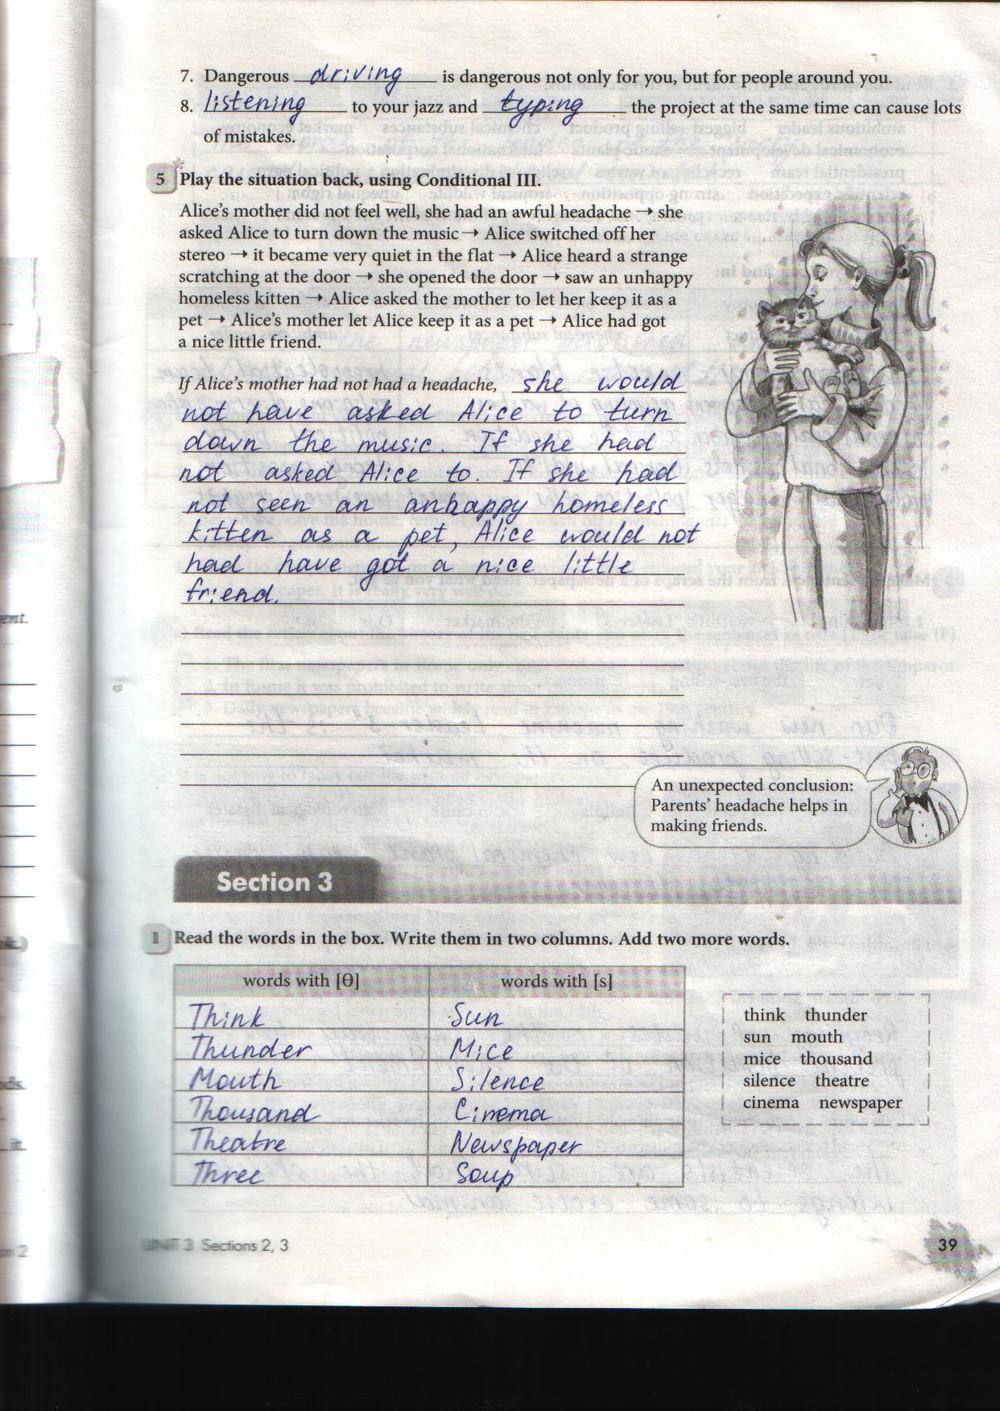 7. Dangerous driving is dangerous not only for you, but for people around you.
8. listening to your jazz and typing the project at the same time can cause lots
of mistakes.
5 Play the situation back, using Conditional III.
Alice's mother did not feel well, she had an awful headache → she
asked Alice to turn down the music → Alice switched off her
stereo → it became very quiet in the flat → Alice heard a strange
scratching at the door → she opened the door → saw an unhappy
homeless kitten → Alice asked the mother to let her keep it as a
pet → Alice's mother let Alice keep it as a pet → Alice had got
a nice little friend.
If Alice's mother had not had a headache, she would
not have asked Alice to turn
down the music. If she had
not asked Alice to. If she had
not seen an anhappy homeless
kitten as a pet, Alice would not
had have got a nice little
friend.
An unexpected conclusion:
Parents' headache helps in
making friends.
Section 3
1 Read the words in the box. Write them in two columns. Add two more words.
words with [θ] words with [s]
Think Sun
Thunder Mice
Mouth Silence
Thousand Cinema
Theatre Newspaper
Three Soup
think thunder
sun mouth
mice thousand
silence theatre
cinema newspaper
UNIT 3 Sections 2, 3
39